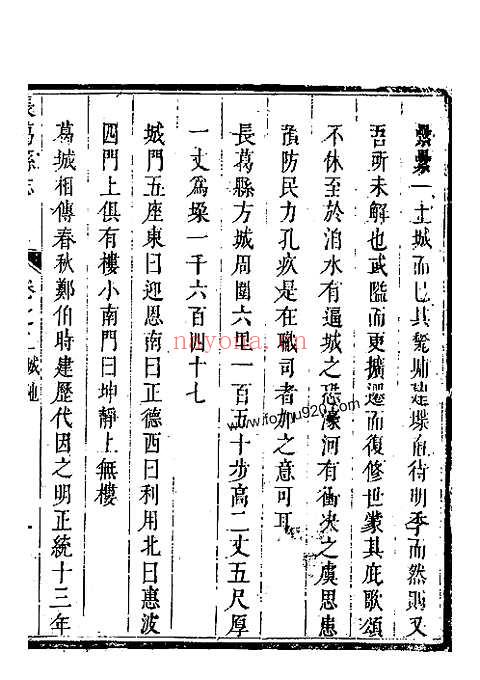 纍纍一土城而已其甃埔建堞直待明季而然則又
吾所未解也或隘而更擴遷而復修世蒙其庇歌頌
不休至於洎水有逼城之恐濠河有衝決之虞思患
預防民力孔疚是在職司者加之意可耳
長葛縣方城周圍六里一百五十步高二丈五尺厚
一丈爲垜一千六百四十七
城門五座東曰迎恩南曰正德西曰利用北曰惠波
四門上俱有樓小南門曰坤靜上無樓
葛城相傳春秋鄭伯時建歷代因之明正統十三年
長葛縣志 卷之二 城池 一
nayona.cn
www.foryug920.com